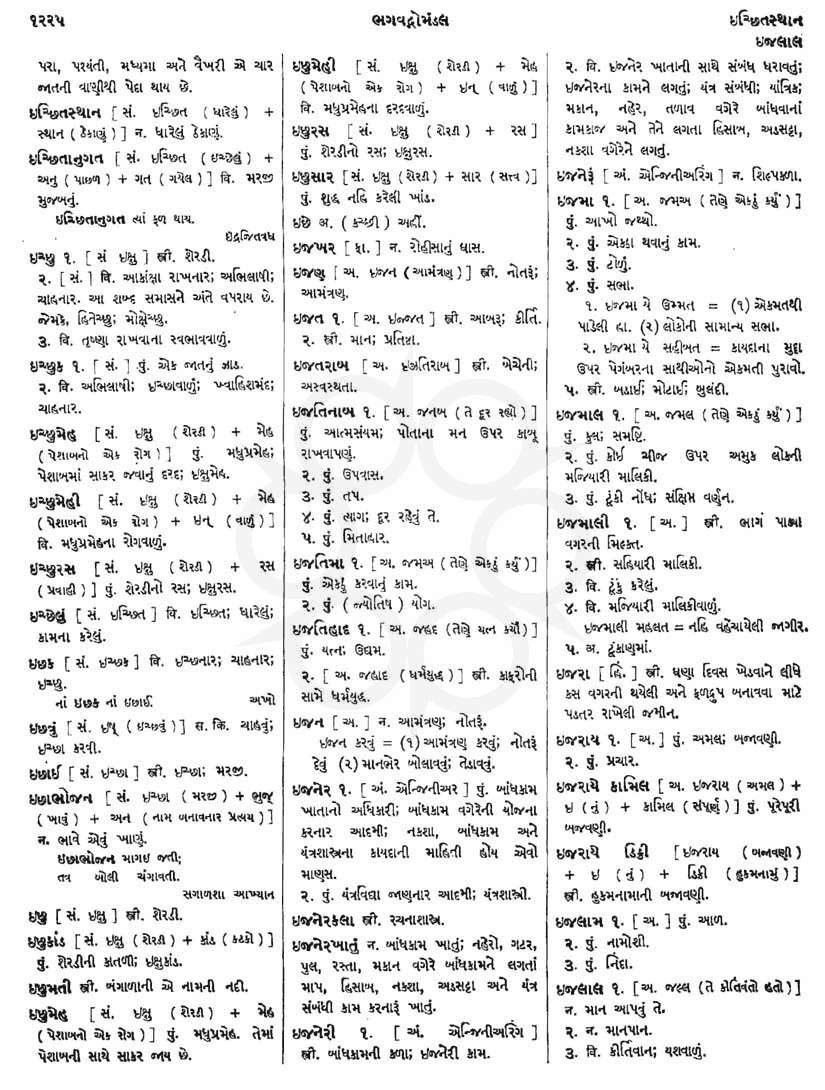 ૧૨૨૫
ભગવદ્ગોમંડલ
ઇચ્છિતસ્થાન
ઇજલાલ
પરા, પશ્યંતી, મધ્યમા અને વૈખરી એ ચાર
જાતની વાણીથી પેદા થાય છે.
ઇચ્છિતસ્થાન [ સં. ઇચ્છિત ( ધારેલું ) +
સ્થાન ( ઠેકાણું ) ] ન. ધારેલું ઠેકાણું.
ઇચ્છિતાનુગત [ સં. ઇચ્છિત ( ઇચ્છેલું ) +
અનુ ( પાછળ ) + ગત ( ગયેલ ) ] વિ. મરજી
મુજબનું.
ઇચ્છિતાનુગત ત્યાં ફળ થાય.
ઇંદ્રજિતવધ
ઇચ્છુ ૧. [ સં ઇક્ષુ ] સ્ત્રી. શેરડી.
૨. [ સં. ] વિ. આકાંક્ષા રાખનાર; અભિલાષી;
ચાહનાર. આ શબ્દ સમાસને અંતે વપરાય છે.
જેમકે, હિતેચ્છુ; મોક્ષેચ્છુ.
૩. વિ. તૃષ્ણા રાખવાના સ્વભાવવાળું.
ઇચ્છુક ૧. [ સં. ] પું. એક જાતનું ઝાડ.
૨. વિ. અભિલાષી; ઇચ્છાવાળું; ખ્વાહિશમંદ;
ચાહનાર.
ઇચ્છુમેહ [ સં. ઇક્ષુ ( શેરડી ) + મેહ
( પેશાબનો એક રોગ ) ] પું. મધુપ્રમેહ;
પેશાબમાં સાકર જવાનું દરદ; ઇક્ષુમેહ.
ઇચ્છુમેહી [ સં. ઇક્ષુ ( શેરડી ) + મેહ
( પેશાબનો એક રોગ ) + ઇન્ ( વાળું ) ]
વિ. મધુપ્રમેહના રોગવાળું.
ઇચ્છુરસ [ સં. ઇક્ષુ ( શેરડી ) + રસ
( પ્રવાહી ) ] પું. શેરડીનો રસ; ઇક્ષુરસ.
ઇચ્છેલું [ સં. ઇચ્છિત ] વિ. ઇચ્છિત; ધારેલું;
કામના કરેલું.
ઇછક [ સં. ઇચ્છક ] વિ. ઇચ્છનાર; ચાહનાર;
ઇચ્છુ.
નાં ઇછક નાં ઇછાઈ. અખો
ઇછવું [ સં. ઇષ્ ( ઇચ્છવું ) ] સ. ક્રિ. ચાહવું;
ઇચ્છા કરવી.
ઇછાઈ [ સં. ઇચ્છા ] સ્ત્રી. ઇચ્છા; મરજી.
ઇછાભોજન [ સં. ઇચ્છા ( મરજી ) + ભુજ્
( ખાવું ) + અન ( નામ બનાવનાર પ્રત્યય ) ]
ન. ભાવે એવું ખાણું.
ઇછાભોજન માગઇ જતી;
તવ બોલી ચંગાવતી.
સગાળશા આખ્યાન
ઇછુ [ સં. ઇક્ષુ ] સ્ત્રી. શેરડી.
ઇછુકાંડ [ સં. ઇક્ષુ ( શેરડી ) + કાંડ ( કટકો ) ]
પું. શેરડીની કાતળી; ઇક્ષુકાંડ.
ઇછુમતી સ્ત્રી. બંગાળાની એ નામની નદી.
ઇછુમેહ [ સં. ઇક્ષુ ( શેરડી ) + મેહ
( પેશાબનો એક રોગ ) ] પું. મધુપ્રમેહ. તેમાં
પેશાબની સાથે સાકર જાય છે.
ઇછુમેહી [ સં. ઇક્ષુ ( શેરડી ) + મેહ
( પેશાબનો એક રોગ ) + ઇન્ ( વાળું ) ]
વિ. મધુપ્રમેહના દરદવાળું.
ઇછુરસ [ સં. ઇક્ષુ ( શેરડી ) + રસ ]
પું. શેરડીનો રસ; ઇક્ષુરસ.
ઇછુસાર [ સં. ઇક્ષુ ( શેરડી ) + સાર ( સત્ત્વ ) ]
પું. શુદ્ધ નહિ કરેલી ખાંડ.
ઇછે અ. ( કચ્છી ) અહીં.
ઇજખર [ ફા. ] ન. રોહીસાનું ઘાસ.
ઇજણ [ અ. ઇજન ( આમંત્રણ ) ] સ્ત્રી. નોતરૂં;
આમંત્રણ.
ઇજત ૧. [ અ. ઇજ્જત ] સ્ત્રી. આબરૂ; કીર્તિ.
૨. સ્ત્રી. માન; પ્રતિષ્ઠા.
ઇજતરાબ [ અ. ઇઝ્તિરાબ ] સ્ત્રી. બેચેની;
અસ્વસ્થતા.
ઇજતિનાબ ૧. [ અ. જનબ ( તે દૂર રહ્યો ) ]
પું. આત્મસંયમ; પોતાના મન ઉપર કાબૂ
રાખવાપણું.
૨. પું. ઉપવાસ.
૩. પું. તપ.
૪. પું. ત્યાગ; દૂર રહેવું તે.
૫. પું. મિતાહાર.
ઇજતિમા ૧. [ અ. જમઅ ( તેણે એકઠું કર્યું ) ]
પું. એકઠું કરવાનું કામ.
૨. પું. ( જ્યોતિષ ) યોગ.
ઇજતિહાદ ૧. [ અ. જહદ ( તેણે યત્ન કર્યો ) ]
પું. યત્ન; ઉદ્યમ.
૨. [ અ. જહાદ ( ધર્મયુદ્ધ ) ] સ્ત્રી. કાફરોની
સામે ધર્મયુદ્ધ.
ઇજન [ અ. ] ન. આમંત્રણ; નોતરૂં.
ઇજન કરવું = (૧) આમંત્રણ કરવું; નોતરૂં
દેવું (૨) માનભેર બોલાવવું; તેડાવવું.
ઇજનેર ૧. [ અં. એન્જિનીઅર ] પું. બાંધકામ
ખાતાનો અધિકારી; બાંધકામ વગેરેની યોજના
કરનાર આદમી; નકશા, બાંધકામ અને
યંત્રશાસ્ત્રના કાયદાની માહિતી હોય એવો
માણસ.
૨. પું. યંત્રવિદ્યા જાણનાર આદમી; યંત્રશાસ્ત્રી.
ઇજનેરકલા સ્ત્રી. રચનાશાસ્ત્ર.
ઇજનેરખાતું ન. બાંધકામ ખાતું; નહેરો, ગટર,
પુલ, રસ્તા, મકાન વગેરે બાંધકામને લગતાં
માપ, હિસાબ, નકશા, અડસટ્ટા અને યંત્ર
સંબંધી કામ કરનારૂં ખાતું.
ઇજનેરી ૧. [ અં. એન્જિનીઅરિંગ ]
સ્ત્રી. બાંધકામની કળા; ઇજનેરી કામ.
૨. વિ. ઇજનેર ખાતાની સાથે સંબંધ ધરાવતું;
ઇજનેરના કામને લગતું; યંત્ર સંબંધી; યાંત્રિક;
મકાન, નહેર, તળાવ વગેરે બાંધવાનાં
કામકાજ અને તેને લગતા હિસાબ, અડસટ્ટા,
નકશા વગેરેને લગતું.
ઇજનેરૂં [ અં. એન્જિનીઅરિંગ ] ન. શિલ્પકળા.
ઇજમા ૧. [ અ. જમઅ ( તેણે એકઠું કર્યું ) ]
પું. આખો જથ્થો.
૨. પું. એકઠા થવાનું કામ.
૩. પું. ટોળું.
૪. પું. સભા.
૧. ઇજમા યે ઉમ્મત = (૧) એકમતથી
પાડેલી હા. (૨) લોકોની સામાન્ય સભા.
૨. ઇજમા યે સહીબત = કાયદાના મુદ્દા
ઉપર પેગંબરના સાથીઓનો એકમતી પુરાવો.
૫. સ્ત્રી. બડાઈ; મોટાઈ; બુલંદી.
ઇજમાલ ૧. [ અ. જમલ ( તેણે એકઠું કર્યું ) ]
પું. કુલ; સમષ્ટિ.
૨. પું. કોઈ ચીજ ઉપર અમુક લોકની
મજિયારી માલિકી.
૩. પું. ટૂંકી નોંધ; સંક્ષિપ્ત વર્ણન.
ઇજમાલી ૧. [ અ. ] સ્ત્રી. ભાગ પાડ્યા
વગરની મિલ્કત.
૨. સ્ત્રી. સહિયારી માલિકી.
૩. વિ. ટૂંકું કરેલું.
૪. વિ. મજિયારી માલિકીવાળું.
ઇજમાલી મહલત = નહિ વહેંચાયેલી જાગીર.
૫. અ. ટૂંકાણમાં.
ઇજરા [ હિં. ] સ્ત્રી. ઘણા દિવસ ખેડવાને લીધે
કસ વગરની થયેલી અને ફળદ્રુપ બનાવવા માટે
પડતર રાખેલી જમીન.
ઇજરાય ૧. [ અ. ] પું. અમલ; બજાવણી.
૨. પું. પ્રચાર.
ઇજરાયે કામિલ [ અ. ઇજરાય ( અમલ ) +
ઇ ( નું ) + કામિલ ( સંપૂર્ણ ) ] પું. પૂરેપૂરી
બજવણી.
ઇજરાયે ડિક્રી [ ઇજરાય ( બજાવણી )
+ ઇ ( નું ) + ડિક્રી ( હુકમનામું ) ]
સ્ત્રી. હુકમનામાની બજાવણી.
ઇજલામ ૧. [ અ. ] પું. આળ.
૨. પું. નામોશી.
૩. પું. નિંદા.
ઇજલાલ ૧. [ અ. જલ્લ ( તે કીર્તિવંતો હતો ) ]
ન. માન આપવું તે.
૨. ન. માનપાન.
૩. વિ. કીર્તિવાન; યશવાળું.